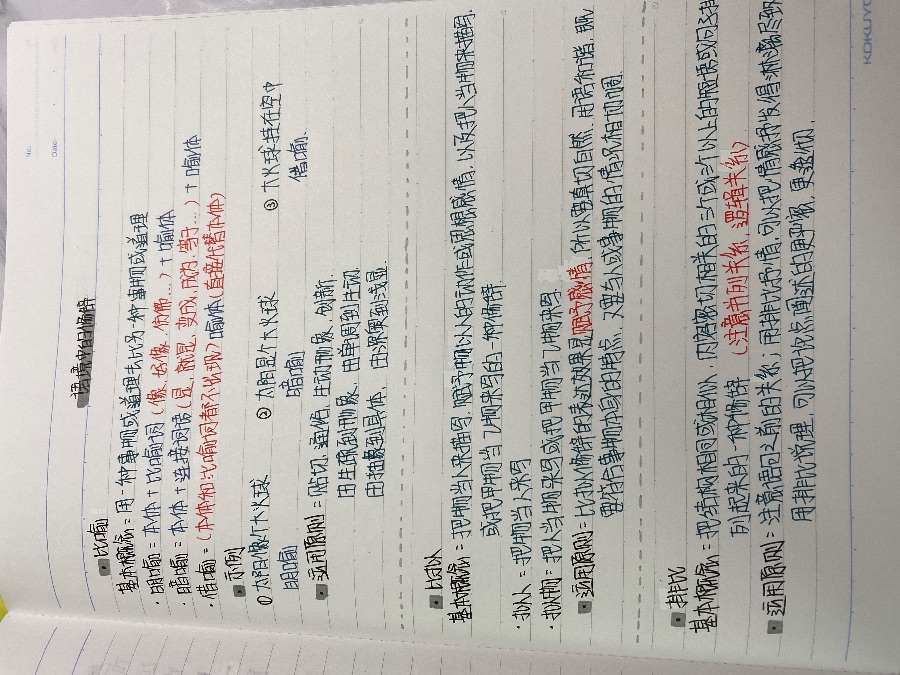 No.
Date
语境中的修辞
比喻
基本概念 = 用一种事物或道理去比另一种事物或道理
· 明喻 = 本体 + 比喻词 (像、好像、仿佛 ...) + 喻体
· 暗喻 = 本体 + 连接词语 (是、就是、变成、成为、等于 ...) + 喻体
· 借喻 = (本体和比喻词都不出现) 喻体 (直接代替本体)
示例
① 太阳像个大火球 ② 太阳是个大火球 ③ 大火球挂在空中
明喻 暗喻 借喻.
运用原则 = 贴切、通俗、生动形象、创新.
由生硬到形象、由单调到生动
由抽象到具体、由深奥到浅显.
比拟
基本概念 = 把物当人来描写, 赋予物以人的动作或思想感情, 以及把人当物来描写,
或把甲物当乙物来写的一种修辞
· 拟人 = 把物当人来写
· 拟物 = 把人当物来写或把甲物当乙物来写.
运用原则 = 比拟修辞的表达效果是赋予感情 所以要真切自然、用语和谐、既
要符合事物本身的特点, 又要与人或事物的情况相协调.
排比
基本概念 = 把结构相同或相似、内容密切相关的三个或三个以上的短语或句子排
列起来的一种修辞 (注意并列关系、逻辑关系)
运用原则 = 注意语句之前的关系; 用排比抒情, 可以把情感抒发得淋漓尽致
用排比说理, 可以把论点阐述的更严密、更透彻.
KOKUYO